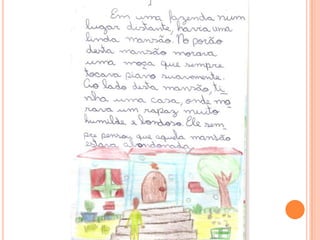 Em uma fazenda num
lugar distante, havia uma
linda mansão. No porão
desta mansão morava
uma moça que sempre
tocava piano suavemente.
Ao lado desta mansão, ti
nha uma casa, onde mo
rava um rapaz muito
humilde e bondoso. Ele sem
pre pensou que aquela mansão
estava abandonada.